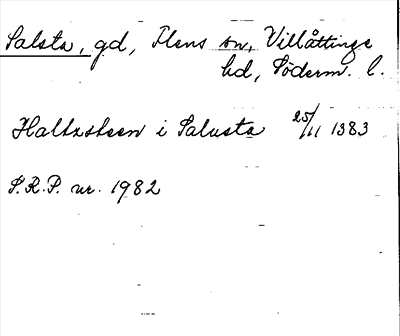 Salsta, gd, Flens sn, Villåttinge
hd, Söderm. l.
Haltzsteen i Salusta 25/11 1383
S.R.P. nr. 1982